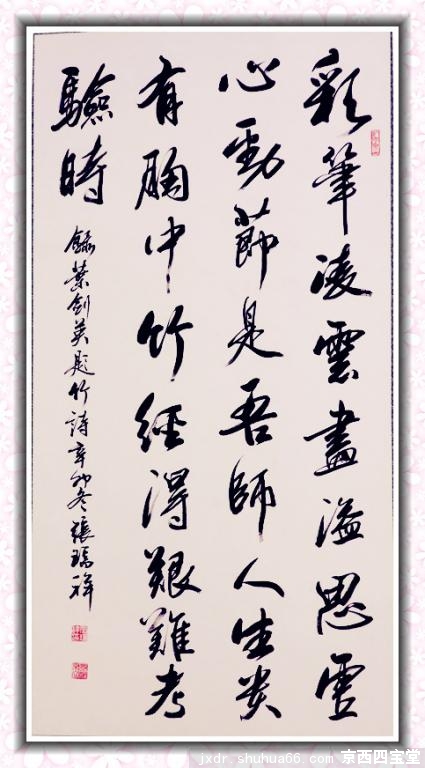 彩筆凌雲畫溢思虛
心勁節是吾師人生貴
有胸中竹經得艱難考
驗時
錄葉劍英題竹詩辛卯冬張瑞祥
jxdr.shuhua66.com 京西四宝堂